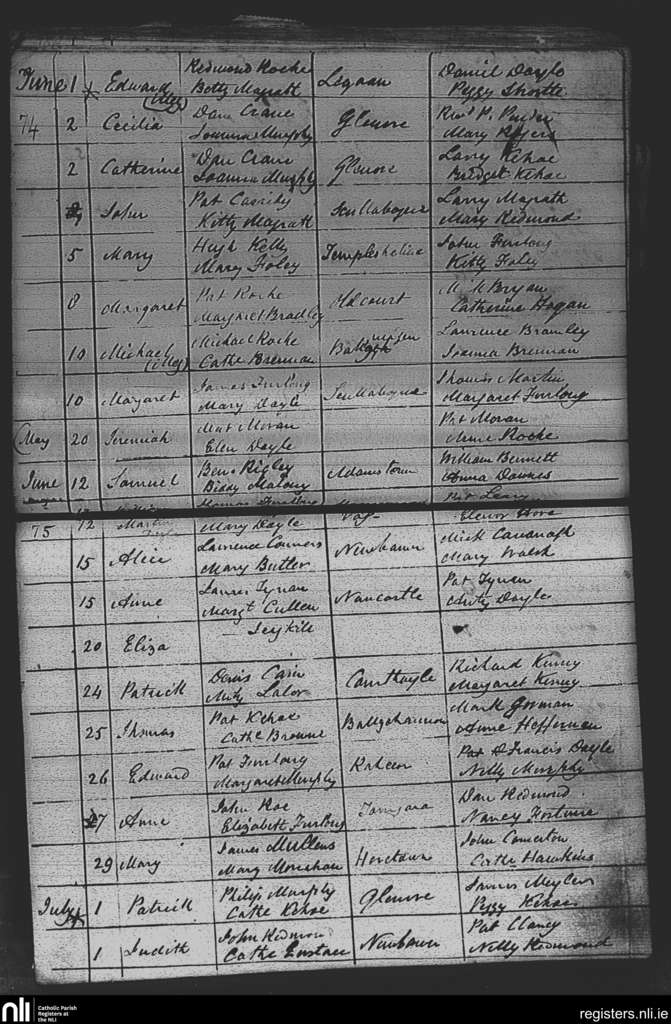 Redmond Roche
June 1 Edward Legaan Daniel Doyle
(Illeg) Betty Magrath Peggy Shortte
74 2 Cecilia Dan Crane Glenure Revd P.
Joanna Murphy Mary Rogers
2 Catherine Dan Crane Glenure Larry Kehoe
Joanna Murphy Bridget Kehoe
John Pat Cassidy Scullaboyne Larry Magrath
Kitty Magrath Mary Redmond
5 Mary Hugh Kelly Templeshelin John Furlong
Mary Foley Kitty Foley
8 Margaret Pat Roche Old court M Bryan
Margaret Bradley Catherine Hogan
10 Michael Michael Roche Laurence Bramley
(Illeg) Cathe Brennan Joanna Brennan
10 Margaret James Furlong Scullaboyne Thomas Martin
Mary Doyle Margaret Furlong
(May 20 Jeremiah Mat Moran Pat Moran
Elen Doyle Anne Roche
June 12 Samuel Ben Rigley Adamstown William Bennett
Biddy Malony Anna Downes
Pat Leary
75 12 Martin Mary Doyle Elenor Hore
15 Alice Laurence Connors Newbawn Mick Cavanagh
Mary Butler Mary Walsh
15 Anne James Tynan Nancastle Pat Tynan
Margt Cullen Doyle
20 Eliza Jeykill
24 Patrick Denis Cain Courthoyle Richard Kinny
Lalor Margaret Kinny
25 Thomas Pat Kehoe Mark Gorman
Cathe Browne Anne Heffernan
26 Edward Pat Furlong Raheen Pat & Francis Doyle
Margaret Murphy Nelly Murphy
27 Anne John Roe Dan Redmond
Elizabeth Furlong Nancy Fortune
29 Mary James Mullens Horetown John Comerton
Mary Monahan Cathe Hawkins
July 1 Patrick Philip Murphy Glenure James Meyler
Cathe Kehoe Peggy Kehoe
1 Judith John Redmond Newbawn Pat Clancy
Cathe Eustace Nelly Redmond
nli Catholic Parish
Registers at
the NLI
registers.nli.ie